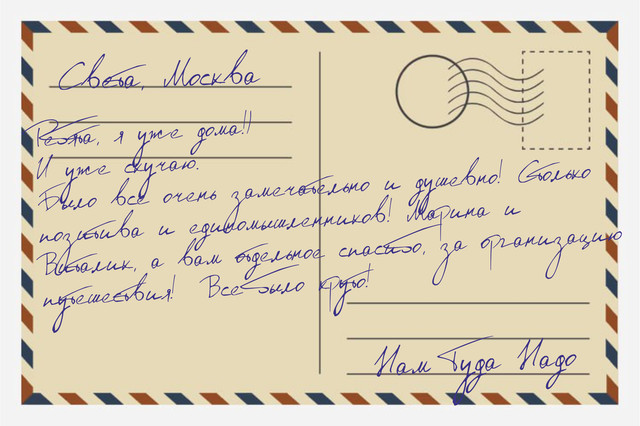 Света, Москва
Ребята, я уже дома!!
И уже скучаю.
Было все очень замечательно и душевно! Столько
позитива и единомышленников! Марина и
Виталик, а вам отдельное спасибо, за организацию
путешествия! Все было круто!
Нам Туда Надо